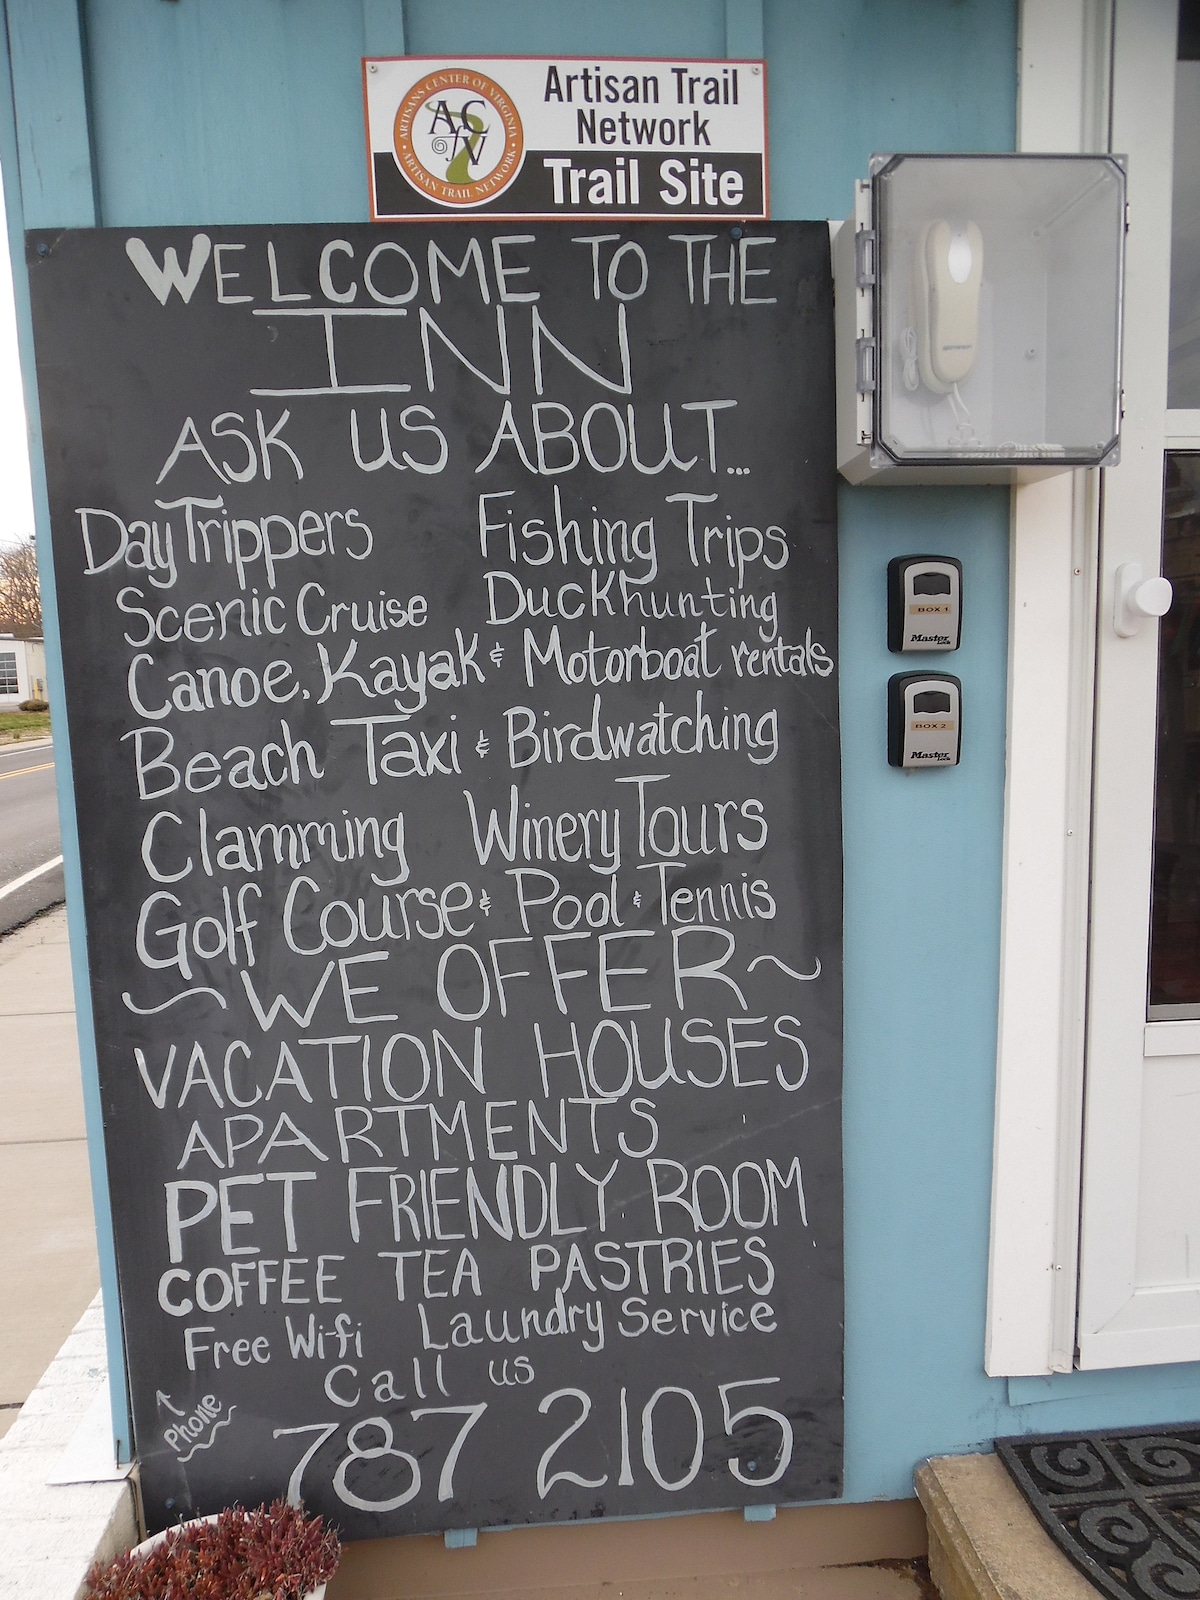 ARTISANS CENTER OF VIRGINIA
ACfV
ARTISAN TRAIL NETWORK
Artisan Trail
Network
Trail Site
WELCOME TO THE
INN
ASK US ABOUT...
DayTrippers Fishing Trips
Scenic Cruise Duckhunting
Canoe, Kayak & Motorboat rentals
Beach Taxi & Birdwatching
Clamming Winery Tours
Golf Course & Pool & Tennis
~ WE OFFER ~
VACATION HOUSES
APARTMENTS
PET FRIENDLY ROOM
COFFEE TEA PASTRIES
Free Wi-fi Laundry Service
Call us
Phone
787 2105
BOX 1
Master
Lock
BOX 2
Master
Lock